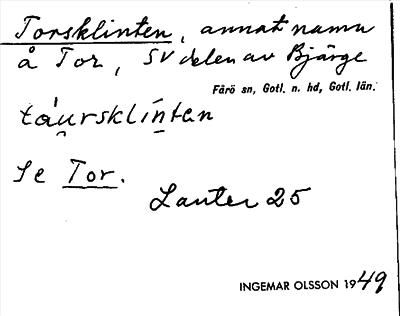 Torsklinten, annat namn
å Tor, SV delen av Bjärge
Fårö sn, Gotl. n. hd, Gotl. län.
táu̯rsklínten
Se Tor.
Lauter 25
INGEMAR OLSSON 1949